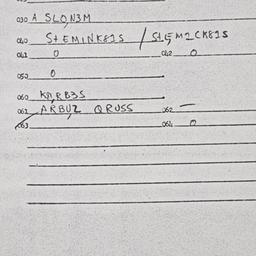 030 A SLON3M
040 StEMINK81S / StEM2CK81S
041 0 042 0
052 0
060 KARB3S
061 ARBUZ QRUSS 062 —
063 064 0